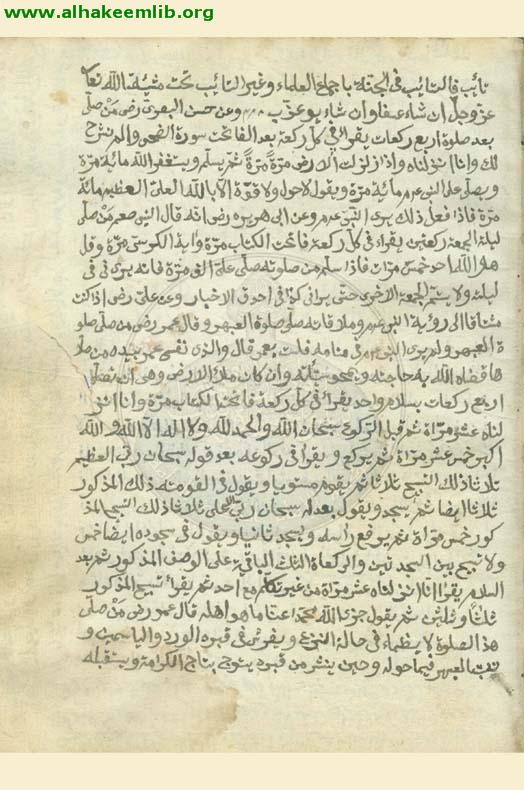 www.alhakeemlib.org
تائب فالتائب في الجنة باجماع العلماء وغير التائب تحت مشيئة الله تعا
عز وجل ان شاء عفا وان شاء يوعذب وعن حسن البصري رض من صلى
بعد صلوة اربع ركعات يقراء في كل ركعة بعد الفاتحة سورة الضحى والم نشرح
لك وانا انزلناه واذا زلزلت الارض مرة مرة ثم يسلم ويستغفر الله مائة مرة
ويصلى على النبي عم مائة مرة ويقول لاحول ولا قوة الا بالله العلى العظيم مائة
مرة فاذا فعل ذلك يرى النبي عم وعن ابى هريره رض انه قال النبي صعم من صلى
ليلة الجمعة ركعتين يقراء في كل ركعة فاتحة الكتاب مرة واية الكرسى مرة وقل
هو الله احد خمس مرات فاذا سلم من صلوته صلى على الف مرة فانه يرى في
ليلته ولا يتم الجمعة الاخرى حتى يراني كذا في احدق الاخبار وعن على رض اذا كنت
مشتاقا الى رؤية النبي عم وملاقاته صلى صلوة العبهر وقال عمر رض من صلى صلو
ة العبهر ولم يرى النبي عم في منامه فلست بعمر قال والذي نفس عمر بيده من صلا
ها قضاه الله به حاجته ويمحو سيئاته وان كان ملاء الارض وهي ان تصلى
اربع ركعات بسلام واحد يقراء في كل ركعة فاتحة الكتاب مرة وانا انز
لناه عشر مراة ثم قبل الركوع سبحان الله والحمد لله ولا اله الا الله والله
اكبر خمس عشر مراة ثم يركع ويقرا في ركوعه بعد قوله سبحان ربى العظيم
ثلاثا ذلك التسبيح ثلاثا ثم يقوم مستويا ويقول في القومة ذلك المذكور
ثلاثا ايضا ثم يسجد ويقول بعد سبحان ربى الاعلى ثلاثا ذلك التسبيح المذ
كور خمس مراة ثم يرفع راسه ويسجد ثانيا ويقول في سجوده ايضا خمس
ولا تسبيح بين السجدتين والركعاة الثلث الباقية على الوصف المذكور ثم بعد
السلام يقراء انا انزلناه عشر مراة من غير تكلم مع احد ثم يقراء تسبيح المذكور
ثلثا وثلثين ثم يقول جزى الله محمدا عنا ما هو اهله قال عمر رض من صلى
هذ الصلوة لا يظماء في حالة النزع ويفرش في قبره الورد والياسمين و
نبت العبهر فيما حوله وحين ينشر من قبره يتوج بتاج الكرامة ويستقبله